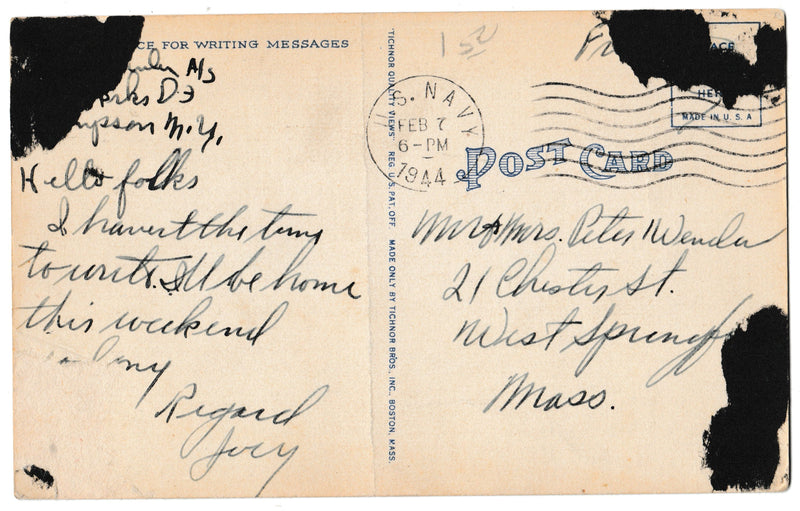 CE FOR WRITING MESSAGES
A/S
D3
mpson N.Y.
Hello folks
I haven't the time
to write. I'll be home
this weekend
Regard
Joey
"TICHNOR QUALITY VIEWS" REG. U.S. PAT. OFF. MADE ONLY BY TICHNOR BROS., INC., BOSTON, MASS.
1 50
U.S. NAVY
FEB 7
6-PM
1944
ACE
HER
MADE IN U.S.A
POST CARD
Mr & Mrs. Peter Wender
21 Chester St.
West Springf
Mass.